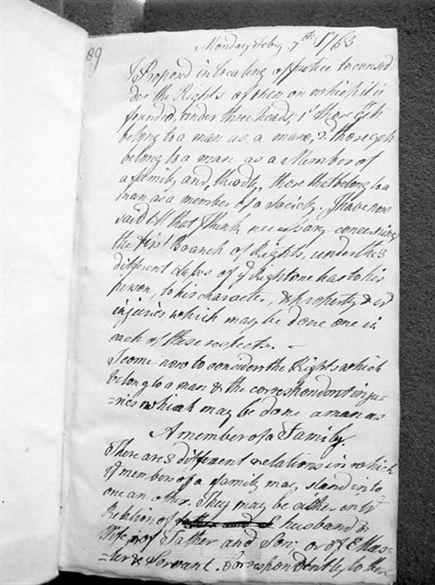 89
Monday Febry 7th 1763
I Proposed in treating of Justice to consi-
der the Rights of Men on which it is
founded, under three heads, 1st those qch
belong to a man as a man, 2 those qch
belong to a man as a Member of
a family and, thirdly, those that belong to a
man as a member of a Society. I have now
said all that I think necessary concerning
the first Branch of Rights, under the 3
different of y Right one has to his
person, to his character, & property &
injuries which may be done one in
each of these respects. —
I come now to consider the Rights which
belong to a man & the correspondent inju-
-ries which may be done a man as
A member of a Family
There are 3 different relations in which
y members of a family may stand into
one an other. They may be either in ye
Relation of husband &
Wife, or of Father and Son, or of Mas-
ter & Servant. Correspondently to these